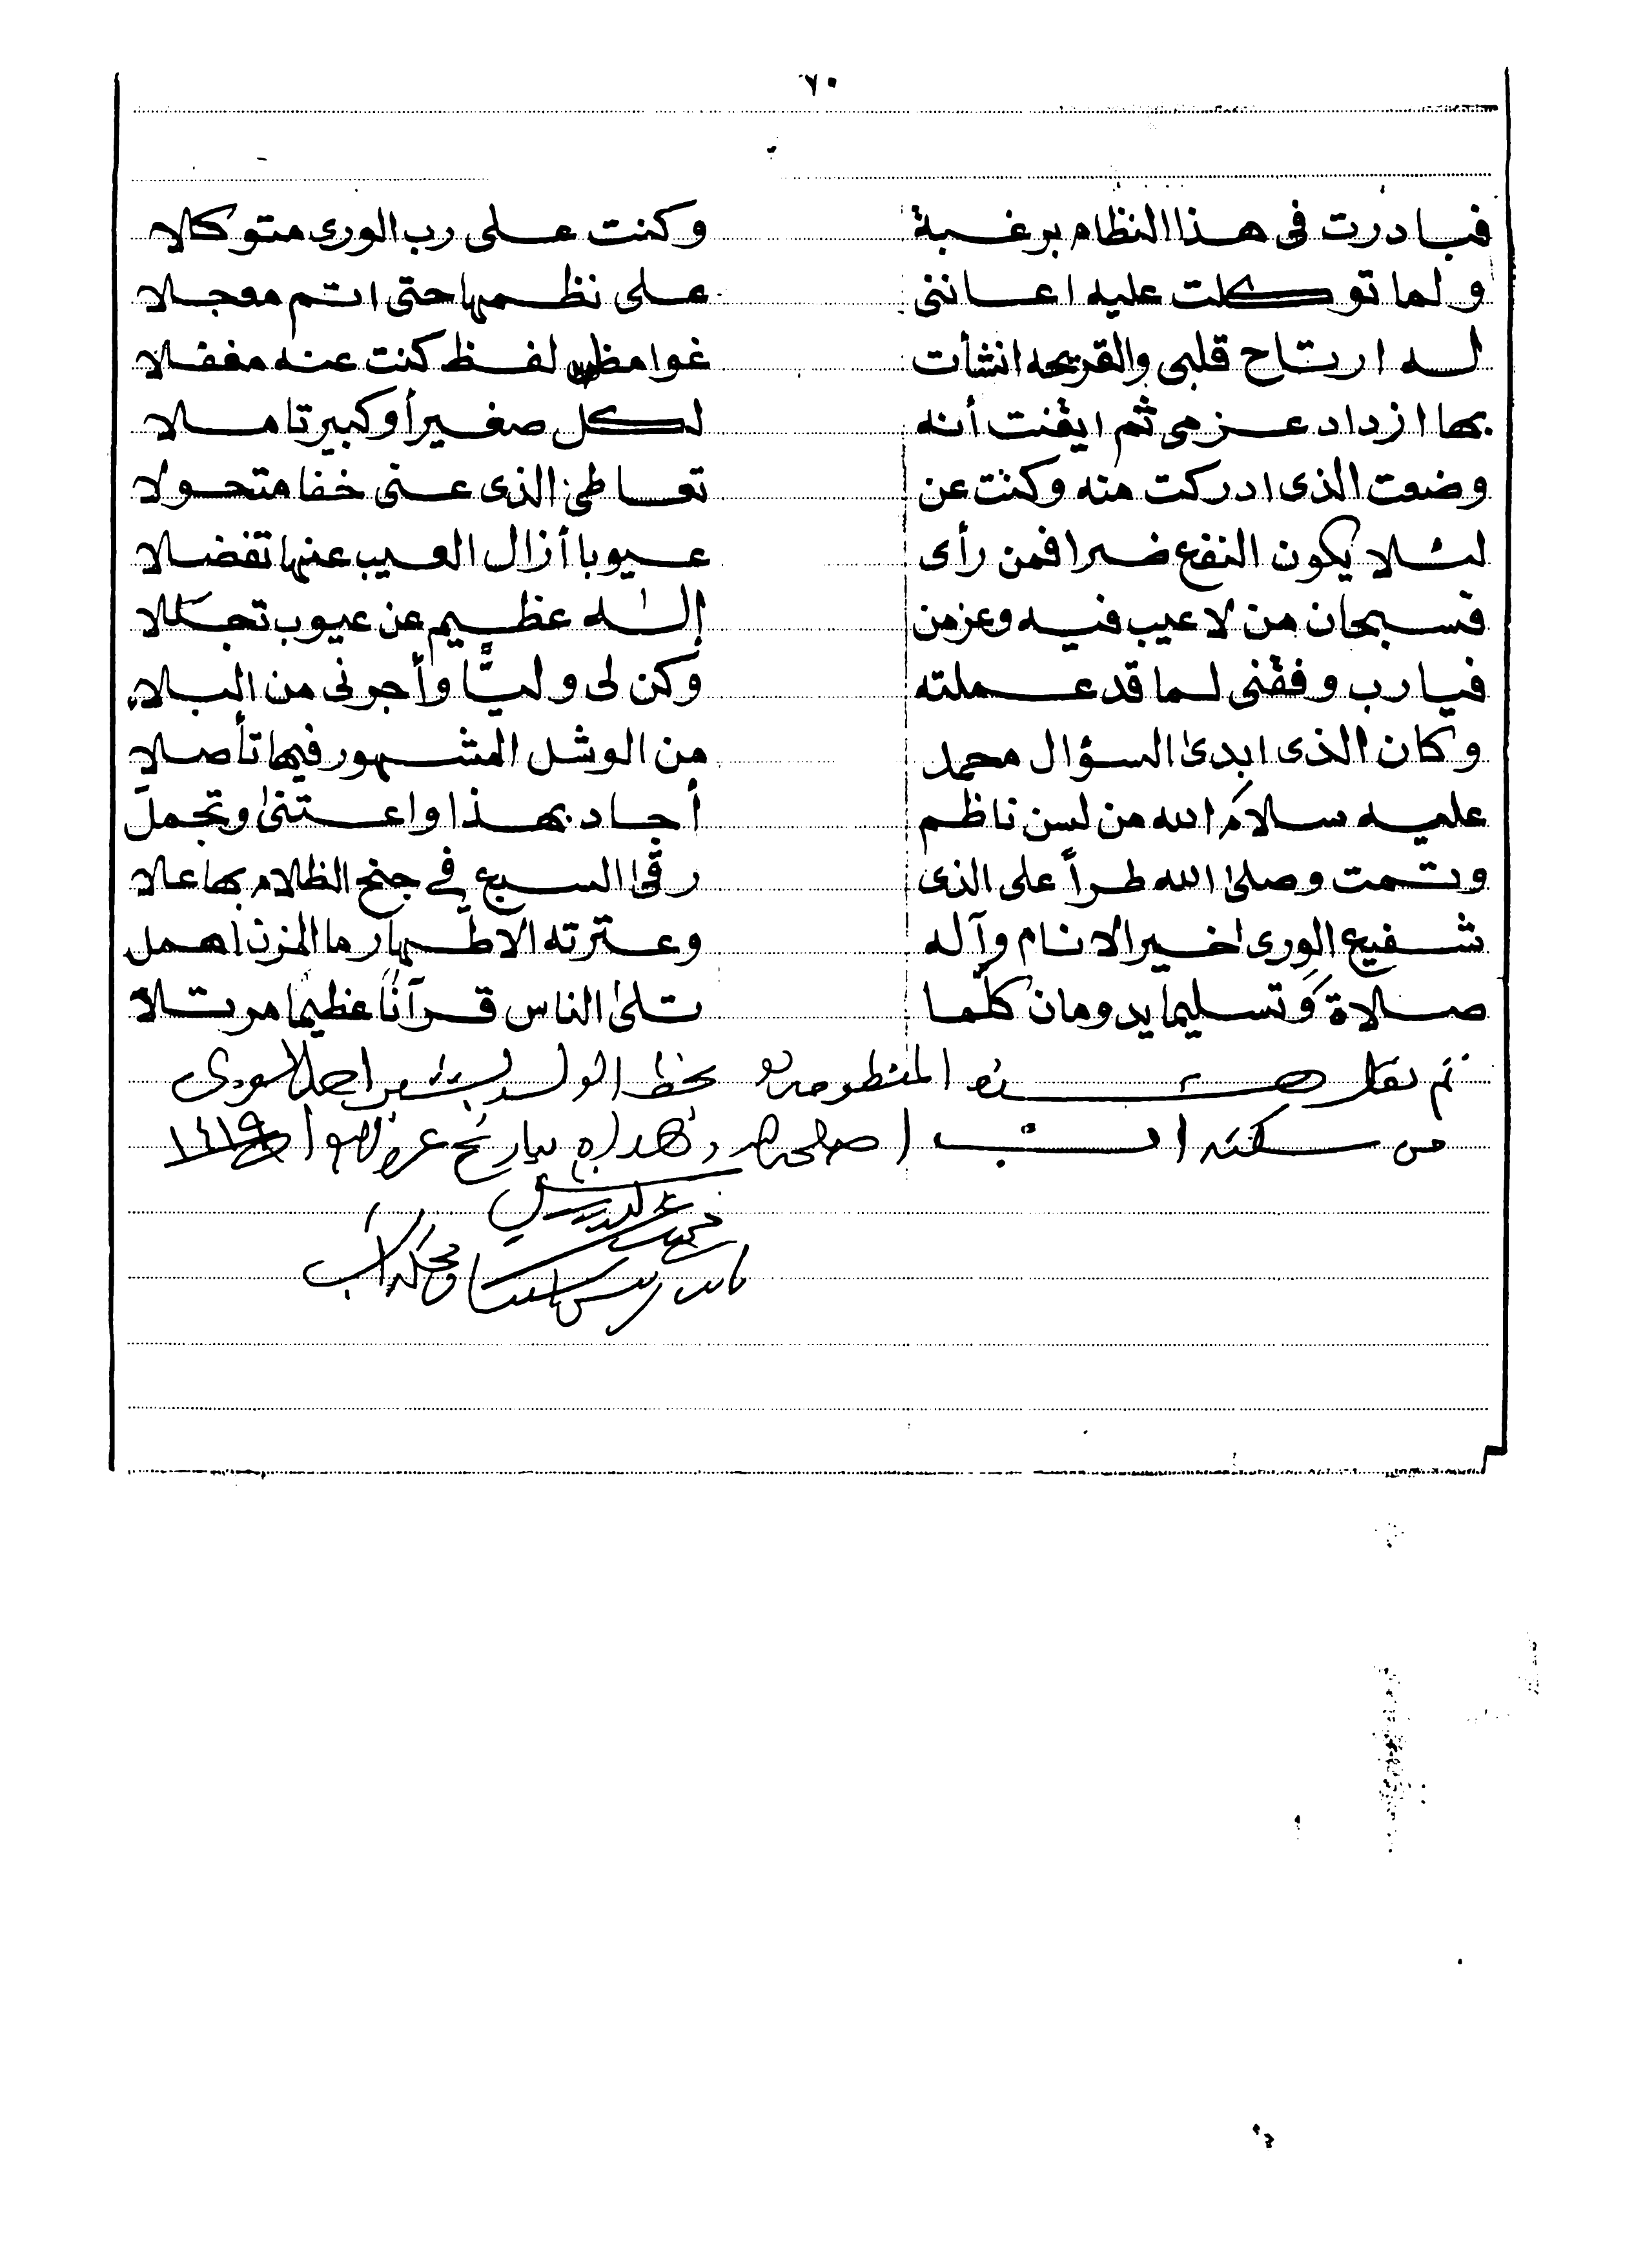 ٧٠
فبادرت فى هذا النظام برغبة وكنت على رب الورى متوكلا
ولما توكلت عليه اعاننى على نظمها حتى اتم معجلا
له ارتاح قلبى والقريحه انشأت غوامظ لفظ كنت عنه مغفلا
بها ازداد عزمى ثم ايقنت أنه لكل صغير أو كبير تاملا
وضعت الذى ادركت منه وكنت عن تعاطى الذى عنى خفا متحولا
لئلا يكون النفع ضرا فمن رأى عيوبا أزال العيب عنها تفضلا
فسبحان من لا عيب فيه وعز من إله عظيم عن عيوب تجللا
فيارب وفقنى لما قد عملته وكن لى وليًّا وأجرنى من البلاء
وكان الذى ابدى السؤال محمد من الوشل المشهور فيها تأصلا
عليه سلام الله من لسن ناظم أجاد بهذا واعتنى وتجمل
وتمت وصلى الله طرأ على الذى رقى السبع في جنح الظلام بها علا
شفيع الورى خير الانام وآله وعترته الاطهار ما المزن اهمل
صلاة وتسليما يدومان كلّما تلى الناس قرآنًا عظيما مرتلا
تم نقل هذه المنظومه بخط الولد بشير احمد السودى
من سكنه اب اصلحه و هداه بتاريخ ١٤١٩